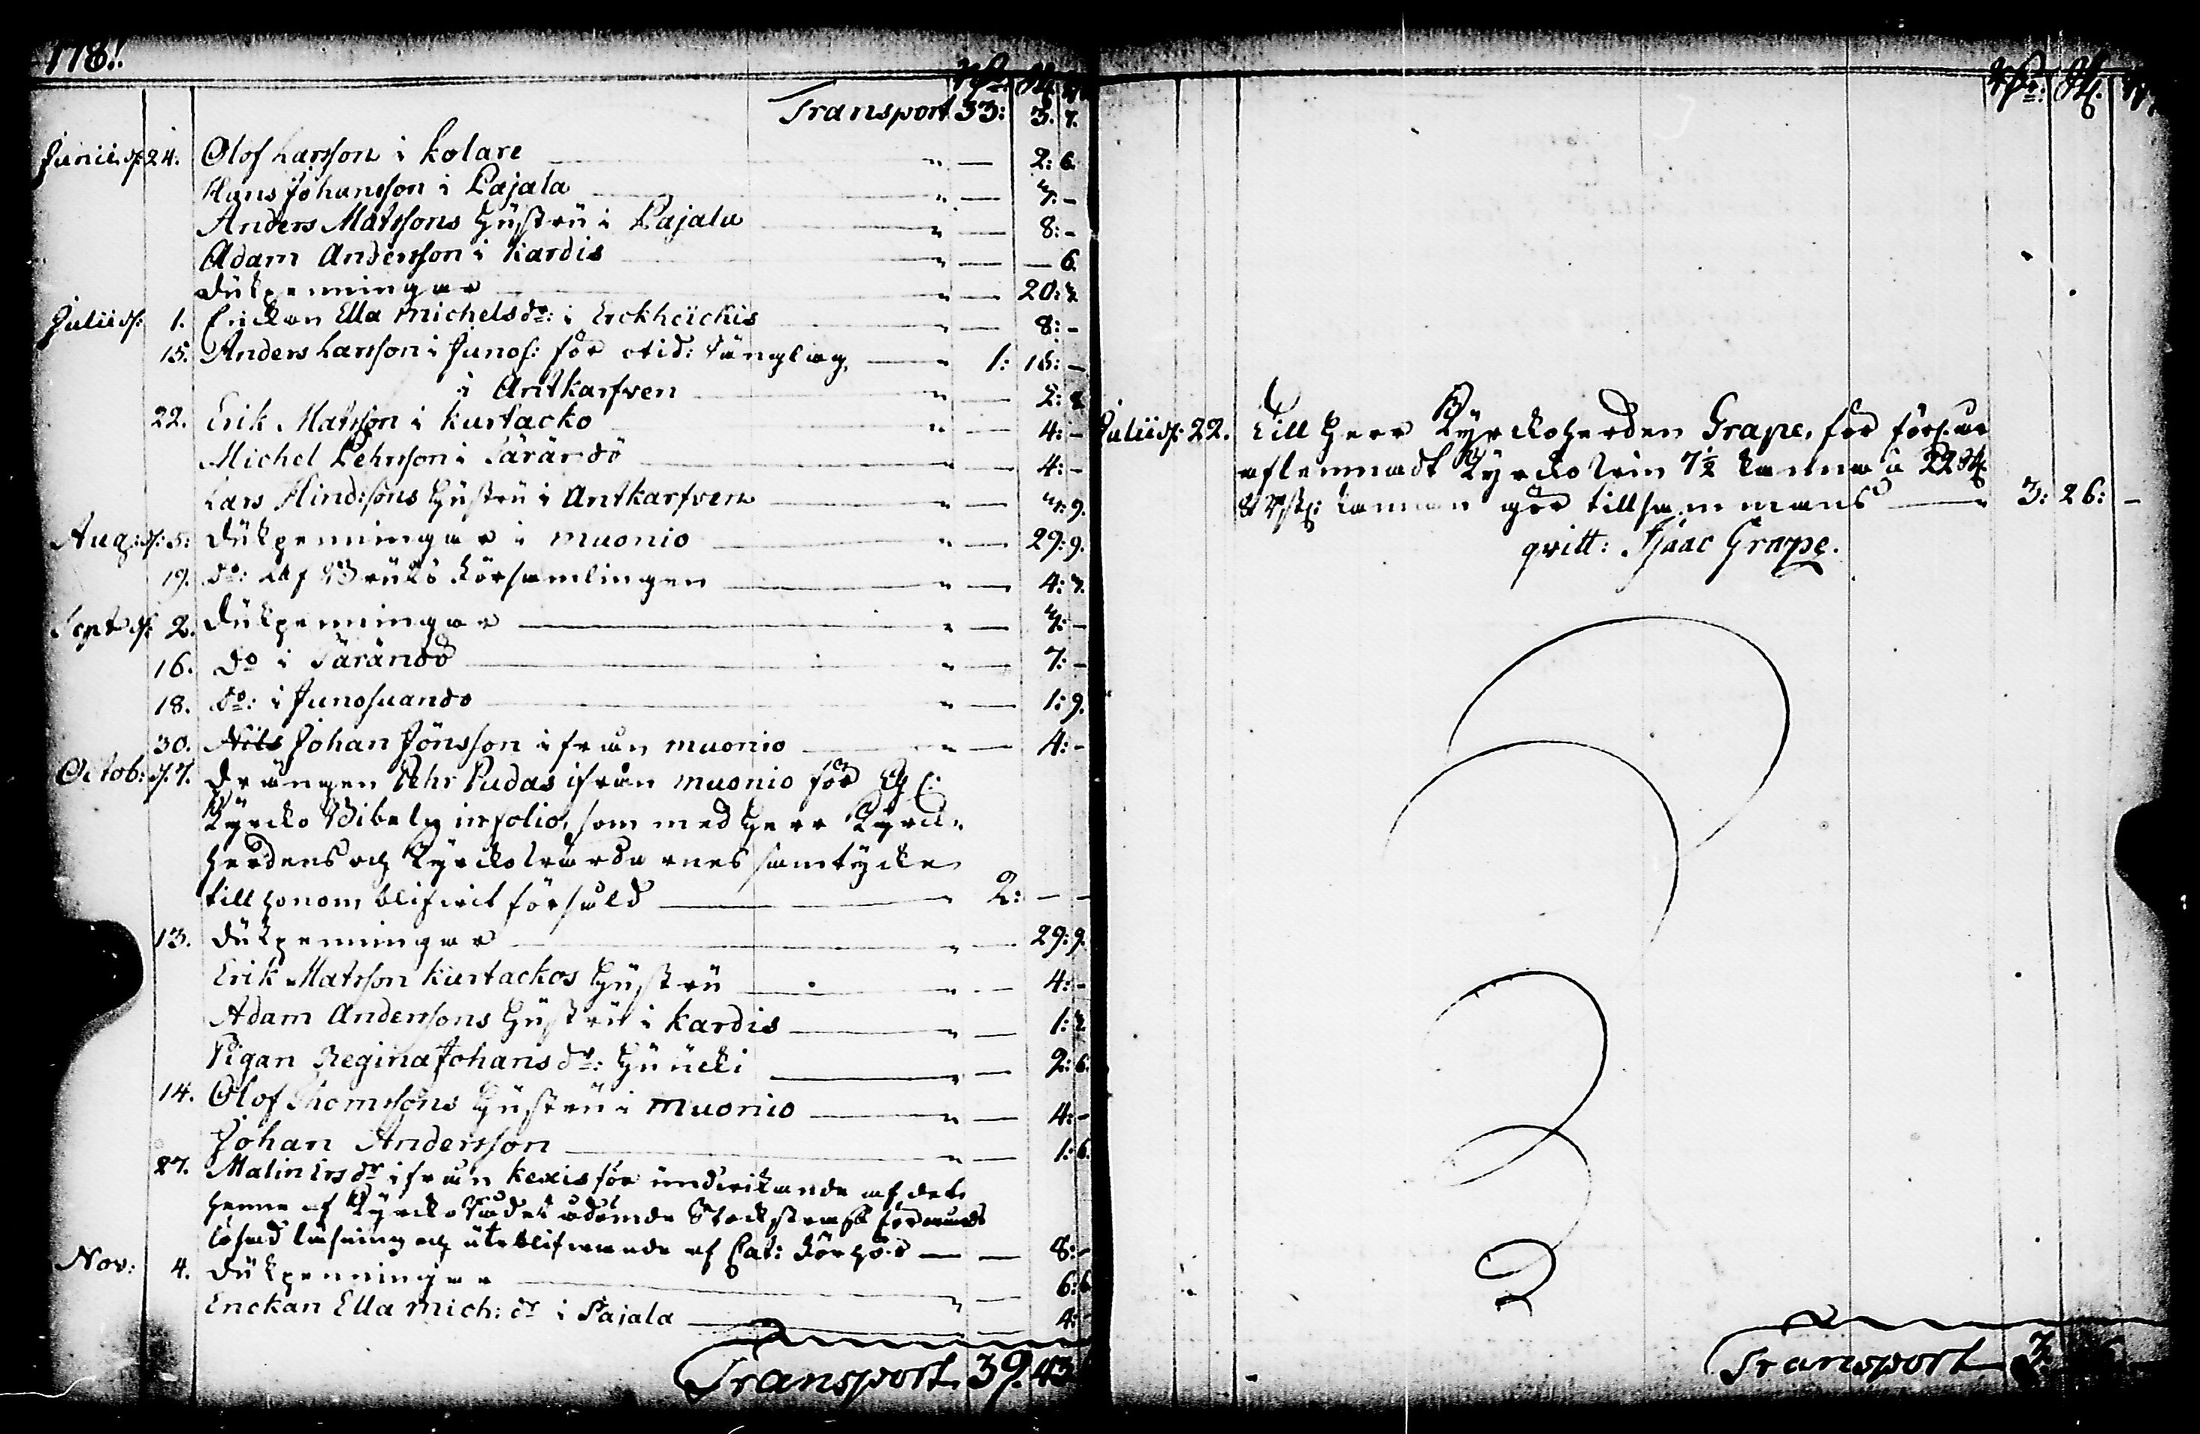 1781.
Rd: sk. rst.
Transport 33: 3. 7.
Junii d: 24. Olof Larsson i Kolare " — 2: 6.
Hans Johansson i Pajala " — 7: -
Anders Matssons Hustru i Pajala " — 8: -
Adam Andersson i Kardis " — — 6.
Dukpenningar " — 20: 7.
Julii d: 1. Enckan Ella Michelsdr: i Erckheickis " — 8: -
15. Anders Larsson i Junos: för otid: sänglag " 1: 15: -
i Antkarfven " — 2: 8.
22. Erik Matsson i Kurtacko " — 4: -
Michel Pehrsson i Tärändö " — 4: -
Lars Hindssons Hustru i Antkarfven " — 7: 9.
Aug: d: 5: Dukpenningar i Muonio " — 29: 9.
19. do: af Bruks Församlingen " — 4: 7.
Sept d: 2. Dukpenningar " — 7: -
16. do i Tärändö " — 7: -
18. do: i Junosuando " — 1: 9.
30. Nils Johan Jönsson ifrån Muonio " — 4: -
Octob: d. 7. Drängen Pehr Pudas ifrån Muonio för
Kyrcko Bibeln in folio, som med Herr Kyrck-
herdens och Kyrckovärdarnes samtycke
till honom blifvit försåld " 2: — -
13. Dukpenningar " — 29: 9.
Erik Matsson Kurtackos Hustru " — 4: -
Adam Anderssons Hustru i Kardis " — 1: 7.
Pigan Regina Johansdr: Huuki " — 2: 6.
14. Olof Thomssons Hustru i Muonio " — 4: -
Johan Andersson " — 1: 6.
27. Malin Ersdr ifrån Kexis för undvikande af det
henne af Kyrcko Rådet ådömde Stockstraff för
läsning och uteblifvande af Cat: Förhör — — 8: -
Nov: 4. Dukpenningar " — 6: 6
Enckan Ella Mich: dr i Pajala " — 4: -
Transport 39. 43
Rd: sk. rst.
Julii d: 22. Till Herr Kyrckoherden Grape, för
aflemnadt Kyrckovin 7½ kanna à 22 sk.
8 rst: kannan gör tillsammans " 3: 26: -
qvitt: Isaac Grape.
Transport 3.